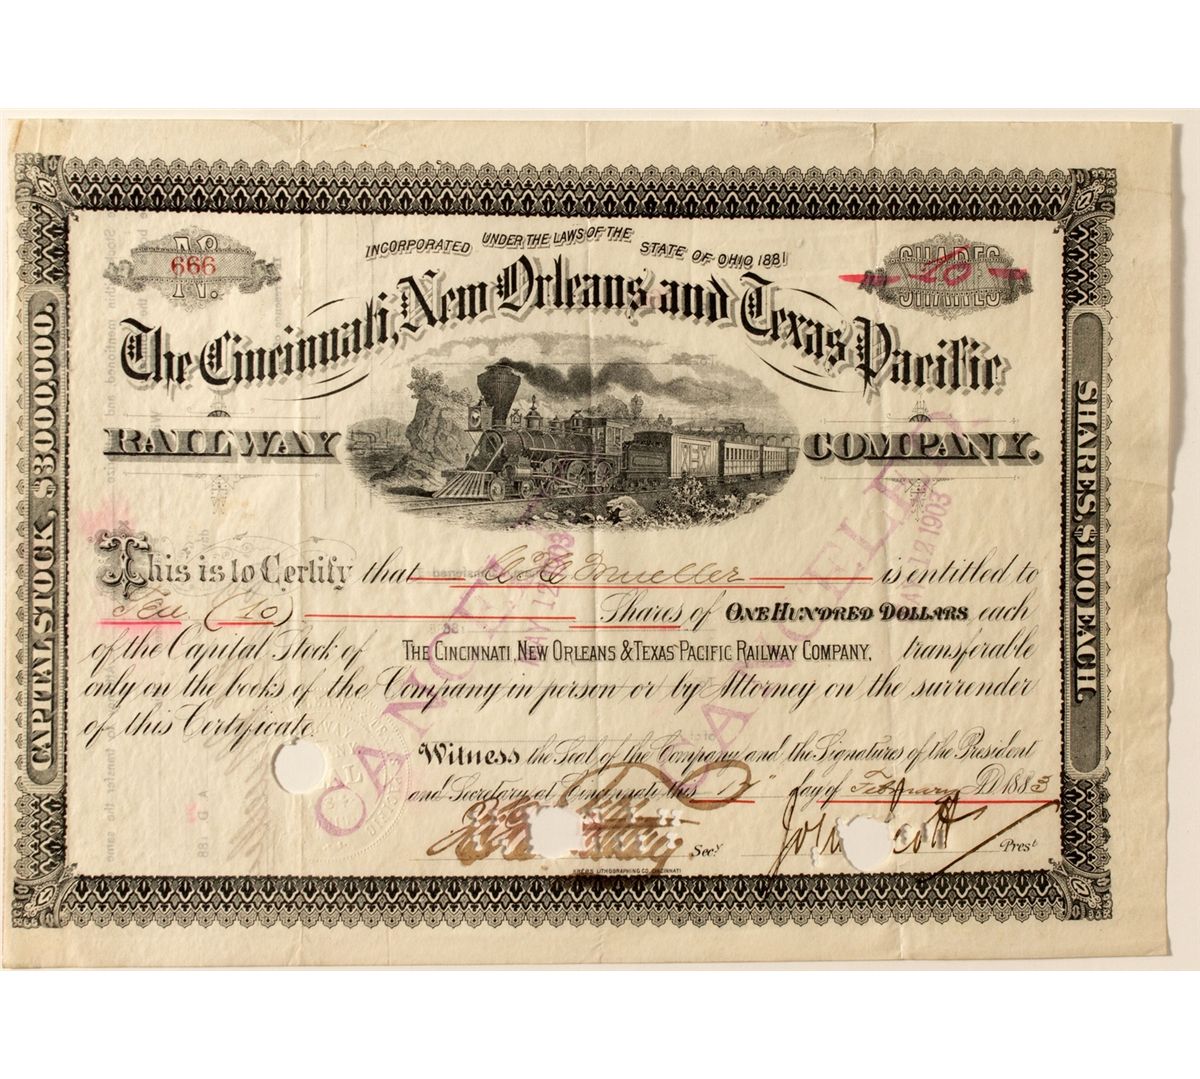 INCORPORATED UNDER THE LAWS OF THE STATE OF OHIO 1881
No. 666
SHARES 10 SHARES
The Cincinnati, New Orleans and Texas Pacific
RAILWAY COMPANY.
CAPITAL STOCK, $3,000,000.
SHARES, $100 EACH.
This is to Certify that Mueller is entitled to
Ten (10) Shares of ONE HUNDRED DOLLARS each
of the Capital Stock of THE CINCINNATI, NEW ORLEANS & TEXAS PACIFIC RAILWAY COMPANY, transferable
only on the books of the Company in person or by Attorney on the surrender
of this Certificate.
Witness the Seal of the Company and the Signatures of the President
and Secretary at Cincinnati this day of February AD 1883
Secy John Scott Prest
KREBS LITHOGRAPHING CO. CINCINNATI
CANCELLED
MAY 12 1903
CANCELLED
MAY 12 1903